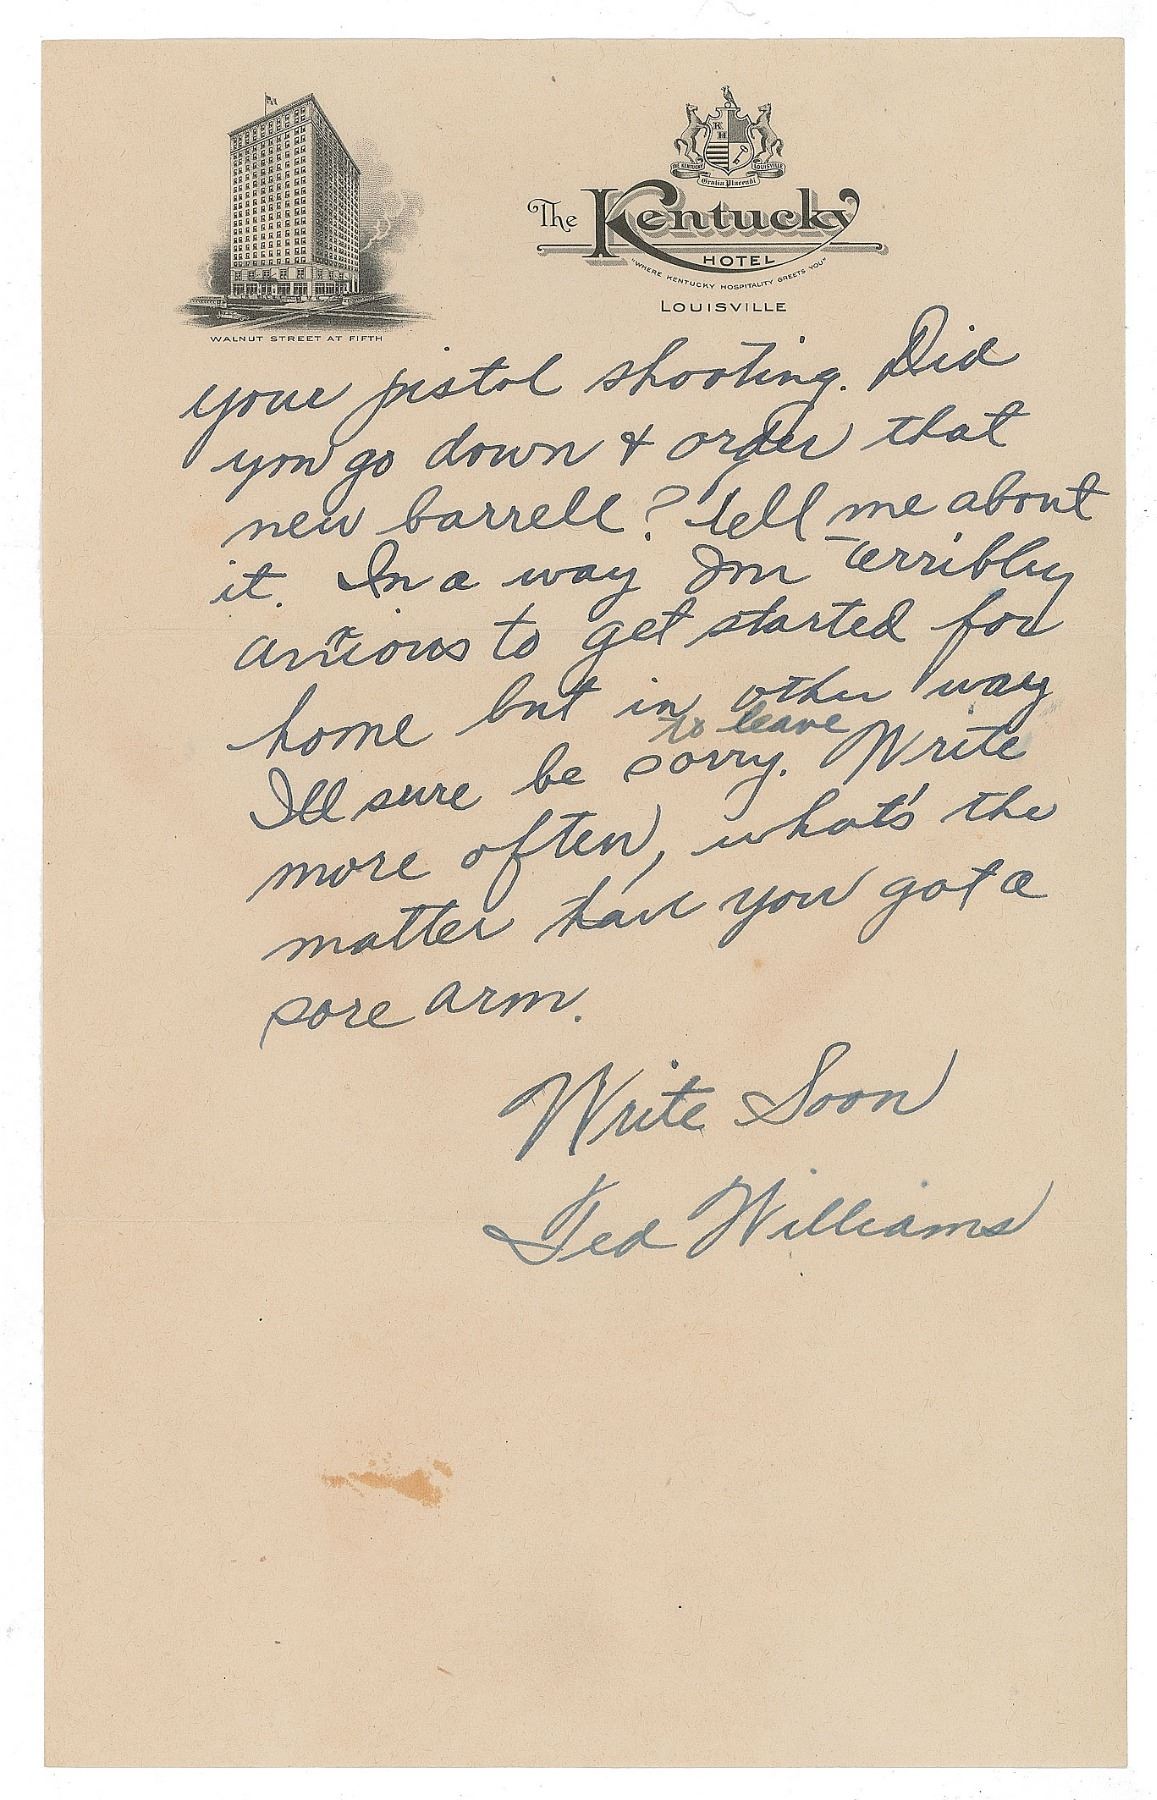 K H
THE KENTUCKY LOUISVILLE
Gratia Placendi
The Kentucky
HOTEL
"WHERE KENTUCKY HOSPITALITY GREETS YOU"
LOUISVILLE
WALNUT STREET AT FIFTH
your pistol shooting. Did
you go down & order that
new barrell? Tell me about
it. In a way Im terribly
anxious to get started for
home but in other way
to leave
I'll sure be sorry. Write
more often, what's the
matter have you got a
sore arm.
Write Soon
Ted Williams